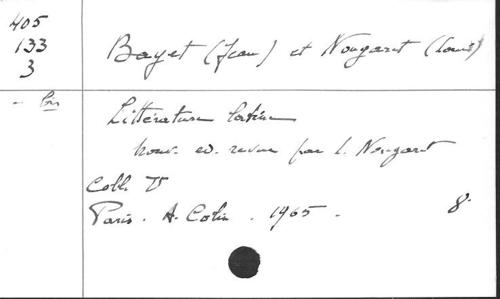 405
133
3
Bayet (Jean) et Nougaret (Louis)
- bis
Littérature latine
nouv. ed. revue par L. Nougaret
Coll. U
Paris. A. Colin. 1965. 8°